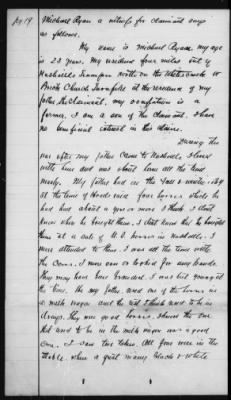 Michael Ryan a witness for claimant says
as follows.
My name is Michael Ryan, my age
is 23 years. My residence four miles out of
Nashville Tennessee north on the Whites creek or
Brick Church Turnpike at the residence of my
father the claimant, my occupation is a
farmer, I am a son of the claimant. I have
no beneficial interest in this claim.
During the
war after my father came to Nashville I lived
with him and was about home all the time
nearly. My father had in the fall & winter 1864
at the time of Hoods raid four horses which he
had had about a year or more I think. I don't
know when he bought them. I don't know but he bought
them at a sale of U.S. horses in Nashville. I
never attended to them. I was all the time with
the cows. I never saw or looked for any brands.
They may have been branded. I was but young at
the time. He my father used one of the horses in
a milk wagon and the rest I think used to be in
drays. They were good horses. I know the one
that used to be in the milk wagon was a good
one. I saw two taken. All four were in the
stable, when a girl nancy blacks & white